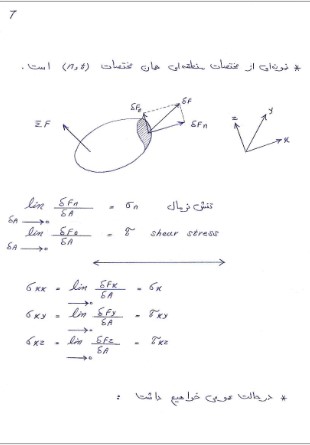 7
* نمونه‌ای از مختصات منطقه‌ای همان مختصات (n,s) است.
ΣF
δFs
δF
δFn
z
y
x
lim δFn/δA = σn تنش نرمال
δA → 0
lim δFs/δA = τ shear stress
δA → 0
σxx = lim δFx/δA = σx
→ 0
σxy = lim δFy/δA = τxy
→ 0
σxz = lim δFz/δA = τxz
→ 0
* در حالت عمومی خواهیم داشت :